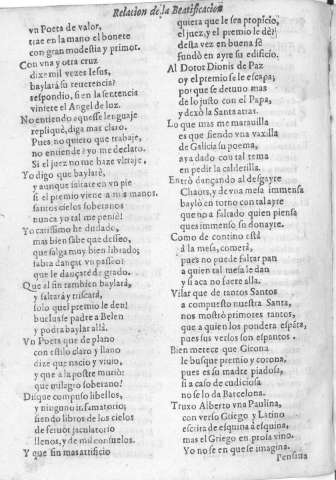 Relacion de la Beatificacion
vn Poeta de valor,
trae en la mano el bonete
con gran modestia y primor.
Con vna y otra cruz
dixe mil vezes Iesus,
baylarà su reuerencia?
respondio, si en la sentencia
viniete el Angel de luz.
No entiendo aquesse lenguaje
repliquè, diga mas claro.
Pues no quiero que trabaje,
no entiende? yo me declaro.
Si el juez no me haze vltraje,
Yo digo que baylarè,
y aunque saltare en vn pie
si el premio viene a mis manos.
santos cielos soberanos
nunca yo tal me pensè!
Yo carissimo he dudado,
mas bien sabe que desseo,
que salga muy bien librado;
sabia dançar vn passeo?
que le dançarè de grado.
Que al sin tambien baylarà,
y saltarà y triscarà,
solo que l premio le den!
buelua se padre a Belen
y podra baylar allà.
Vn Poeta que de plano
con estilo claro y llano
dize que nacio y viuio,
y que a la postre murio:
que milagro soberano!
Dis que compuso libellos,
y ninguno infamatorio;
siendo libros de los cielos
de feruor jaculatorio
llenos, y de mil consuelos.
Y que sin mas artificio
quiera que le sea propicio,
el juez, y el premio le dè?
desta vez en buena fè
fundò en ayre su edificio.
Al Dotor Dionis de Paz
oy el premio se le escapa;
porque se detuuo mas
de lo justo con el Papa,
y dexò la Santa atras.
Lo que mas me marauilla
es que siendo vna vaxilla
de Galicia su poema,
aya dado con tal tema
en pedir la calderilla.
Entrò dançando al desgayre
Chauts, y de vna mela immensa
baylò en torno con tal ayre
que no a faltado quien piensa
que a immenso su donayre.
Como de contino està
à la mesa, comerà,
pues no puede faltar pan
a quien tal mesa le dan
y si aca no fuere alla.
Vilar que de tantos Santos
a compuesto nuestra Santa,
nos mostrò primores tantos,
que a quien los pondera espáta,
pues sus versos son espantos.
Bien merece que Girona
le busque premio y corona,
pues es su madre piadosa,
si a caso de cudiciosa
no se lo da Barcelona.
Truxo Alberto vna Paulina,
con verso Griego y Latino
escrita de esquina à esquina,
mas el Griego en prosa vino.
Yo no se en que se imagina.
Pensina